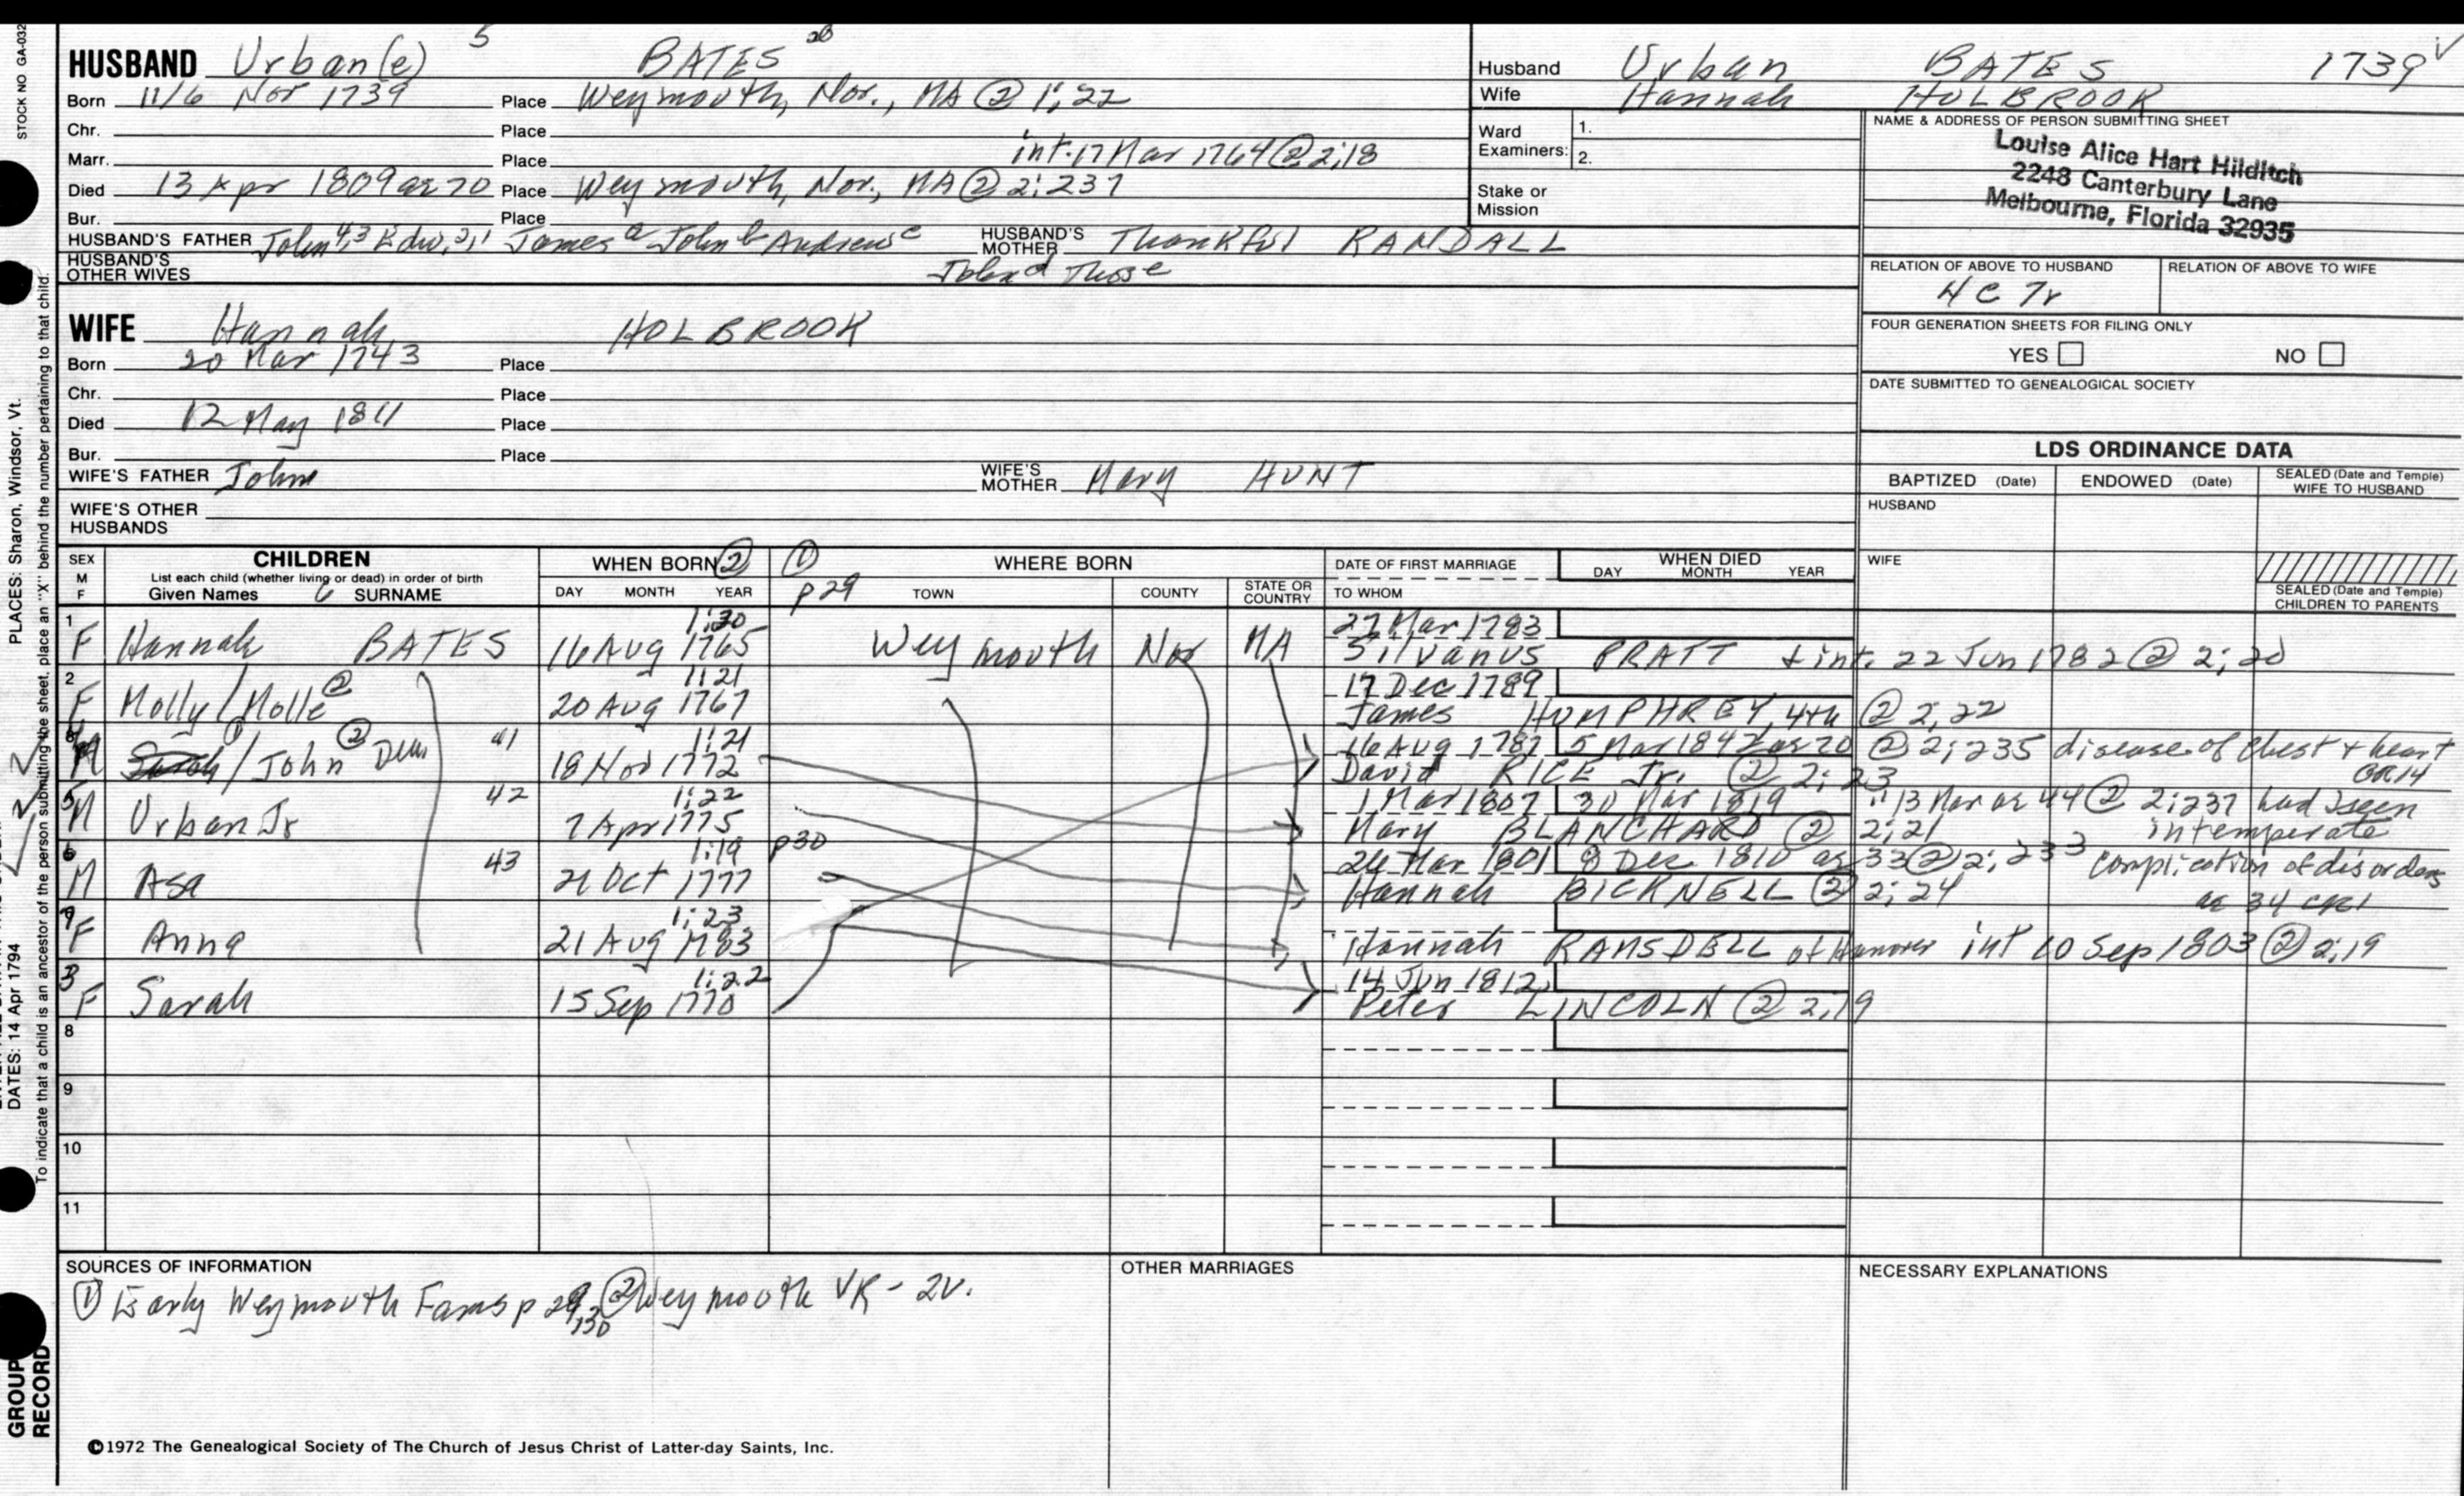 STOCK NO GA-032
HUSBAND Urban(e) 5 BATES 20
Born 11/6 Nov 1739 Place Weymouth, Nor., MA @ 1;22
Chr. Place
Marr. Place int. 17 Mar 1764 @ 2;18
Died 13 Apr 1809 ae 70 Place Weymouth, Nor., MA @ 2:237
Bur. Place
HUSBAND'S FATHER John 4,3 Edw. 2,1 James a John b Andrew c HUSBAND'S MOTHER Thankful RANDALL
HUSBAND'S OTHER WIVES
Husband Urban BATES 1739
Wife Hannah HOLBROOK
Ward Examiners: 1.
2.
Stake or Mission
NAME & ADDRESS OF PERSON SUBMITTING SHEET
Louise Alice Hart Hilditch
2248 Canterbury Lane
Melbourne, Florida 32935
RELATION OF ABOVE TO HUSBAND RELATION OF ABOVE TO WIFE
4 C 7r
FOUR GENERATION SHEETS FOR FILING ONLY
YES NO
DATE SUBMITTED TO GENEALOGICAL SOCIETY
WIFE Hannah HOLBROOK
Born 20 Mar 1743 Place
Chr. Place
Died 12 May 1811 Place
Bur. Place
WIFE'S FATHER John WIFE'S MOTHER Mary HUNT
WIFE'S OTHER HUSBANDS
LDS ORDINANCE DATA
BAPTIZED (Date) ENDOWED (Date) SEALED (Date and Temple) WIFE TO HUSBAND
HUSBAND
WIFE
SEALED (Date and Temple) CHILDREN TO PARENTS
SEX M F
CHILDREN
List each child (whether living or dead) in order of birth
Given Names SURNAME
WHEN BORN ②
DAY MONTH YEAR
① p29
WHERE BORN
TOWN COUNTY STATE OR COUNTRY
DATE OF FIRST MARRIAGE
TO WHOM
WHEN DIED
DAY MONTH YEAR
1 1:20 27 Mar 1783
F Hannah BATES 16 Aug 1765 Weymouth Nor MA Silvanus PRATT + int. 22 Jun 1782 @ 2;20
2 1:21 17 Dec 1789
F Molly / Molle ② 20 Aug 1767 James HUMPHREY, 4th @ 2;22
41 1:21 16 Aug 1787 5 Mar 1842 ae 70 @ 2;235 disease of chest + heart
M Sarah / John ② Dea 18 Nov 1772 David RICE Jr. @ 2:23 GR14
5 42 1:22 1 Mar 1807 30 Mar 1819 13 Mar ae 44 @ 2;237 had been
M Urban Jr 7 Apr 1775 Mary BLANCHARD @ 2;21 intemperate
6 43 1:19 p30 26 Mar 1801 8 Dec 1810 ae 33 @ 2;233 complication of disorders
M Asa 21 Oct 1777 Hannah BICKNELL @ 2;24 ae 34 CR1
7 1:23
F Anna 21 Aug 1783 Hannah RAMSDELL of Hanover int 10 Sep 1803 @ 2;19
3 1:22 14 Jun 1812
F Sarah 15 Sep 1770 Peter LINCOLN @ 2;19
8
9
10
11
SOURCES OF INFORMATION
① Early Weymouth Fams p 29,30 ② Weymouth VR - 2v.
OTHER MARRIAGES
NECESSARY EXPLANATIONS
©1972 The Genealogical Society of The Church of Jesus Christ of Latter-day Saints, Inc.
PLACES: Sharon, Windsor, Vt.
DATES: 14 Apr 1794
To indicate that a child is an ancestor of the person submitting the sheet, place an "X" behind the number pertaining to that child.
GROUP RECORD